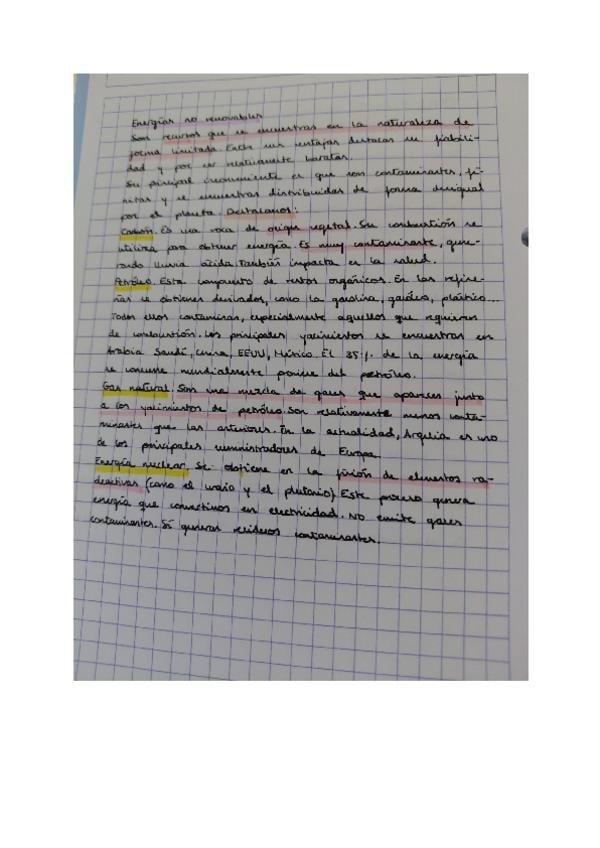 Energías no renovables
Son recursos que se encuentran en la naturaleza de
forma limitada. Entre sus ventajas destacan su fiabili-
dad y por ser relativamente baratas.
Su principal inconveniente es que son contaminantes, fi-
nitas y se encuentran distribuidas de forma desigual
por el planeta. Destacamos:
Carbón. Es una roca de origen vegetal. Su combustión se
utiliza para obtener energía. Es muy contaminante, gene-
rando lluvia ácida. También impacta en la salud.
Petróleo. Esta compuesto de restos orgánicos. En las refine-
rías se obtienen derivados, como la gasolina, gasóleo, plástico...
Todos ellos contaminan, especialmente aquellos que requieren
de combustión. Los principales yacimientos se encuentran en
Arabia Saudí, China, EEUU, México. El 35% de la energía
se consume mundialmente proviene del petróleo.
Gas natural. Son una mezcla de gases que aparecen junto
a los yacimientos de petróleo. Son relativamente menos conta-
minantes que las anteriores. En la actualidad, Argelia es uno
de los principales suministradores de Europa.
Energía nuclear. Se obtiene en la fisión de elementos ra-
deactivas (como el uranio y el plutonio). Este proceso genera
energía que convertimos en electricidad. No emite gases
contaminantes. Sí generan residuos contaminantes.